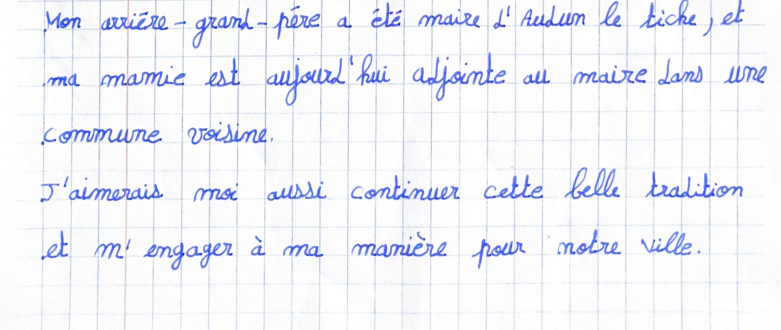 Mon arrière-grand-père a été maire d'Audun le tiche, et
ma mamie est aujourd'hui adjointe au maire dans une
commune voisine.
J'aimerais moi aussi continuer cette belle tradition
et m'engager à ma manière pour notre ville.